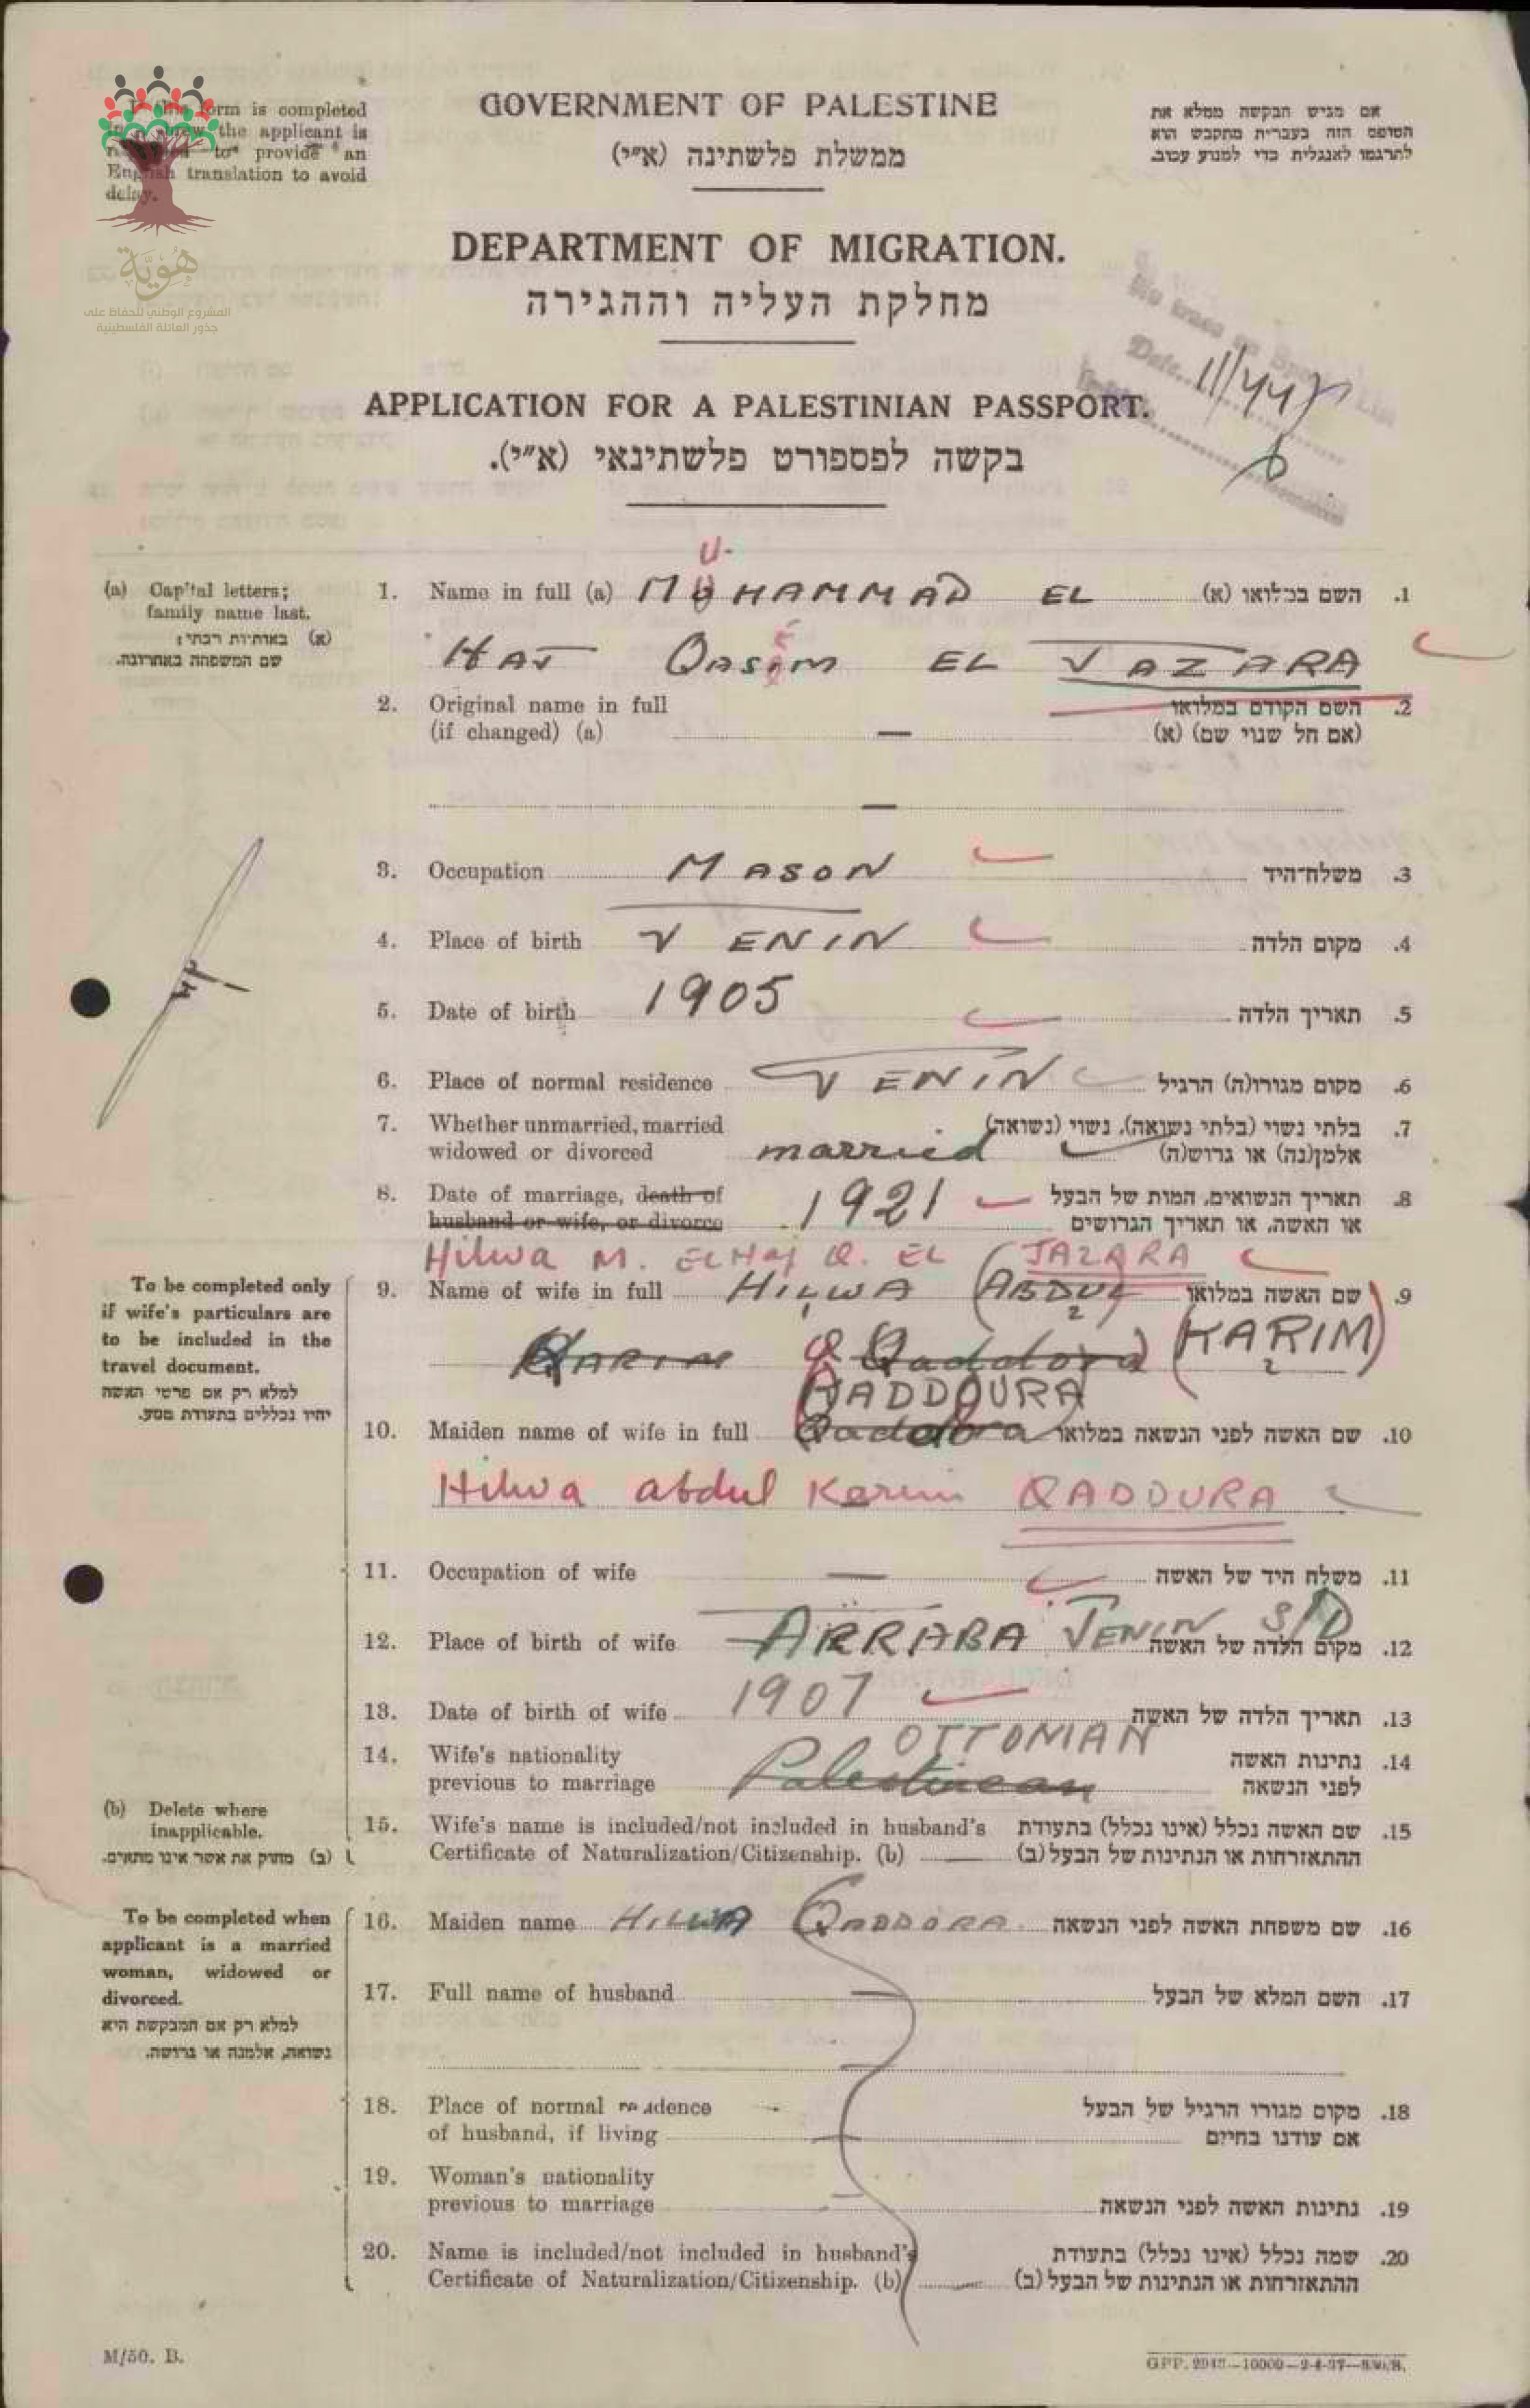 If this form is completed
in Hebrew the applicant is
to provide an
English translation to avoid
delay.
هوية
المشروع الوطني للحفاظ على
جذور العائلة الفلسطينية
GOVERNMENT OF PALESTINE
ממשלת פלשתינה (א״י)
אם מגיש הבקשה ממלא את
הטופס הזה בעברית מתבקש הוא
לתרגמו לאנגלית כדי למנוע עכוב.
DEPARTMENT OF MIGRATION.
מחלקת העליה וההגירה
No trace on Special List
Date 11/4/47
APPLICATION FOR A PALESTINIAN PASSPORT.
בקשה לפספורט פלשתינאי (א״י).
(a) Capital letters; family name last.
(א) באותיות רבתי:
שם המשפחה באחרונה.
U-
1. Name in full (a) MUHAMMAD EL השם במלואו (א) .1
HAJ QASIM EL JAZARA
2. Original name in full השם הקודם במלואו .2
(if changed) (a) — (אם חל שנוי שם) (א)
—
3. Occupation MASON משלח־היד .3
4. Place of birth JENIN מקום הלדה .4
5. Date of birth 1905 תאריך הלדה .5
6. Place of normal residence JENIN מקום מגורו(ה) הרגיל .6
7. Whether unmarried, married בלתי נשוי (בלתי נשואה), נשוי (נשואה) .7
widowed or divorced married אלמן(נה) או גרוש(ה)
8. Date of marriage, death of 1921 תאריך הנשואים, המות של הבעל .8
husband or wife, or divorce או האשה, או תאריך הגרושים
Hilwa M. EL Haj Q. EL JAZARA
To be completed only
if wife's particulars are
to be included in the
travel document.
למלא רק אם פרטי האשה
יהיו נכללים בתעודת מסע.
9. Name of wife in full HILWA (ABDUL שם האשה במלואו .9
KARIM Qaddora (KARIM)
QADDOURA
10. Maiden name of wife in full Qaddora שם האשה לפני הנשאה במלואו .10
Hilwa abdul Karim QADDURA
11. Occupation of wife — משלח היד של האשה .11
12. Place of birth of wife ARRABA JENIN S/D מקום הלדה של האשה .12
13. Date of birth of wife 1907 תאריך הלדה של האשה .13
OTTOMAN
14. Wife's nationality נתינות האשה .14
previous to marriage Palestinean לפני הנשאה
(b) Delete where inapplicable.
(ב) מחוק את אשר אינו מתאים.
15. Wife's name is included/not included in husband's שם האשה נכלל (אינו נכלל) בתעודת .15
Certificate of Naturalization/Citizenship. (b) — ההתאזרחות או הנתינות של הבעל (ב)
To be completed when
applicant is a married
woman, widowed or
divorced.
למלא רק אם המבקשת היא
נשואה, אלמנה או גרושה.
16. Maiden name HILWA QADDORA שם משפחת האשה לפני הנשאה .16
17. Full name of husband — השם המלא של הבעל .17
—
18. Place of normal residence מקום מגורו הרגיל של הבעל .18
of husband, if living — אם עודנו בחיים
19. Woman's nationality
previous to marriage — נתינות האשה לפני הנשאה .19
20. Name is included/not included in husband's שמה נכלל (אינו נכלל) בתעודת .20
Certificate of Naturalization/Citizenship. (b) — ההתאזרחות או הנתינות של הבעל (ב)
M/50. B.